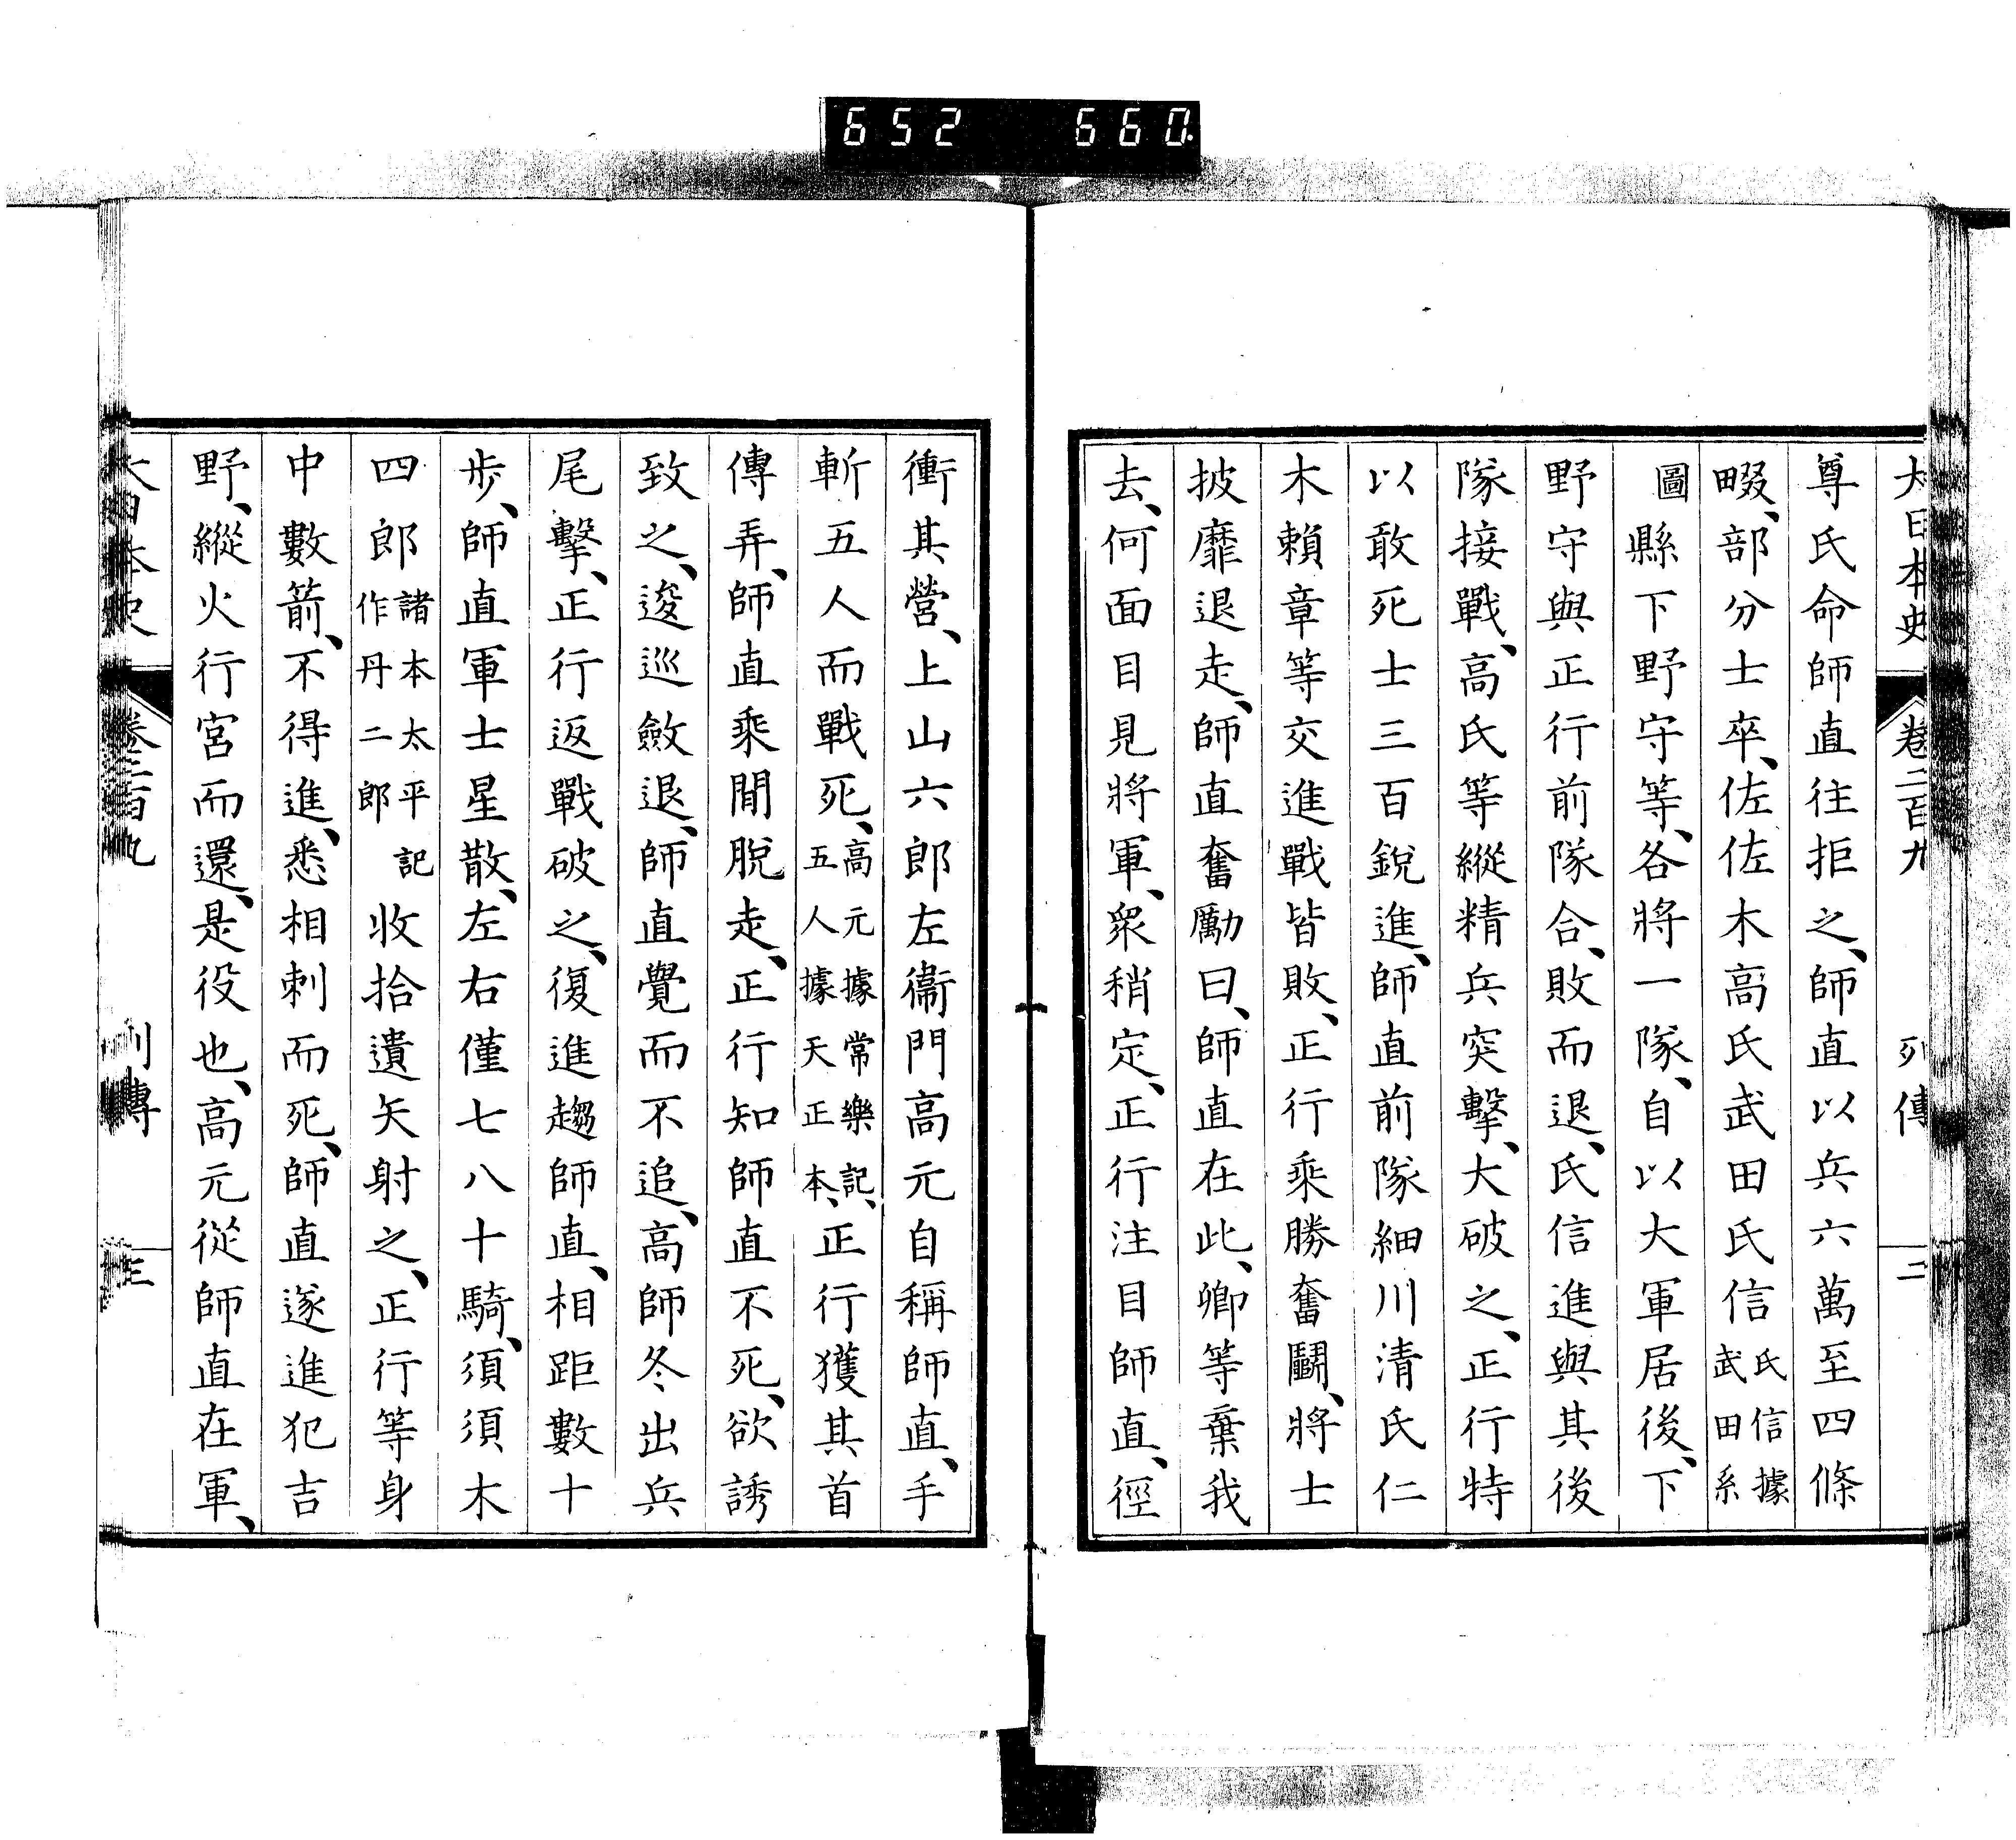 652 660
大日本史 卷二百九 列傳 二
尊氏命師直往拒之、師直以兵六萬至四條
畷、部分士卒、佐佐木高氏武田氏信氏信據武田系
圖縣下野守等、各將一隊、自以大軍居後、下
野守與正行前隊合、敗而退、氏信進與其後
隊接戰、高氏等縱精兵突擊、大破之、正行特
以敢死士三百銳進、師直前隊細川清氏仁
木賴章等交進戰皆敗、正行乘勝奮鬭、將士
披靡退走、師直奮勵曰、師直在此、卿等棄我
去、何面目見將軍、衆稍定、正行注目師直、徑
衝其營、上山六郎左衞門高元自稱師直、手
斬五人而戰死、高元據常樂記、五人據天正本、正行獲其首
傳弄、師直乘間脫走、正行知師直不死、欲誘
致之、逡巡斂退、師直覺而不追、高師冬出兵
尾擊、正行返戰破之、復進趨師直、相距數十
步、師直軍士星散、左右僅七八十騎、須須木
四郎諸本太平記作丹二郎收拾遺矢射之、正行等身
中數箭、不得進、悉相刺而死、師直遂進犯吉
野、縱火行宮而還、是役也、高元從師直在軍、
大日本史 卷二百九 列傳 三